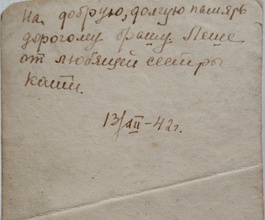 На добрую, долгую память
дорогому брату Леше
от любящей сестры
Кати.
13/VIII-42г.